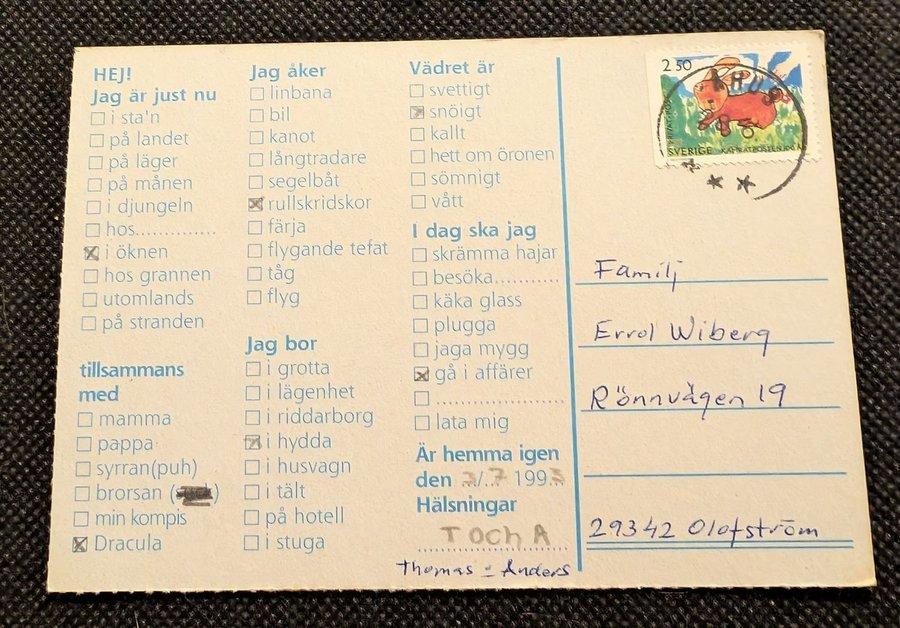 HEJ!
Jag är just nu
i sta'n
på landet
på läger
på månen
i djungeln
hos..............
i öknen
hos grannen
utomlands
på stranden
tillsammans
med
mamma
pappa
syrran(puh)
brorsan (
)
min kompis
Dracula
Jag åker
linbana
bil
kanot
långtradare
segelbåt
rullskridskor
färja
flygande tefat
tåg
flyg
Jag bor
i grotta
i lägenhet
i riddarborg
i hydda
i husvagn
i tält
på hotell
i stuga
Vädret är
svettigt
snöigt
kallt
hett om öronen
sömnigt
vått
I dag ska jag
skrämma hajar
besöka...........
käka glass
plugga
jaga mygg
gå i affärer
......................
lata mig
Är hemma igen
den 3/.7 1993
Hälsningar
T och A
Thomas = Anders
2 50
SVERIGE
Familj
Errol Wiberg
Rönnvägen 19
29342 Olofström